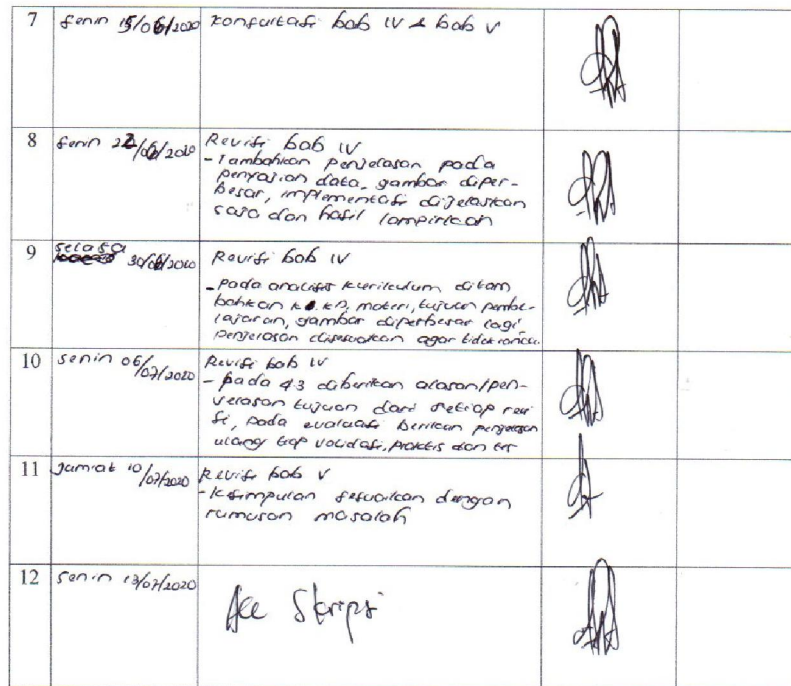 7 Senin 15/06/2020 Konsultasi bab IV & bab V
8 Senin 22/06/2020 Revisi bab IV
- Tambahkan penjelasan pada
penyajian data, gambar diper-
besar, implementasi dijelaskan
saja dan hasil lampirkan
9 Selasa 30/06/2020 Revisi bab IV
- pada analisis kurikulum ditam
bahkan KI. KD, materi, tujuan pembe-
lajaran, gambar diperbesar lagi
penjelasan disesuaikan agar tidak rancu.
10 Senin 06/07/2020 Revisi bab IV
- pada 4.3 diberikan alasan/pen-
jelasan tujuan dari setiap revi
si, pada evaluasi berikan penjelasan
ulang tiap validasi, praktis dan
11 Jumat 10/07/2020 Revisi bab V
- Kesimpulan sesuaikan dengan
rumusan masalah
12 Senin 13/07/2020 Acc Skripsi